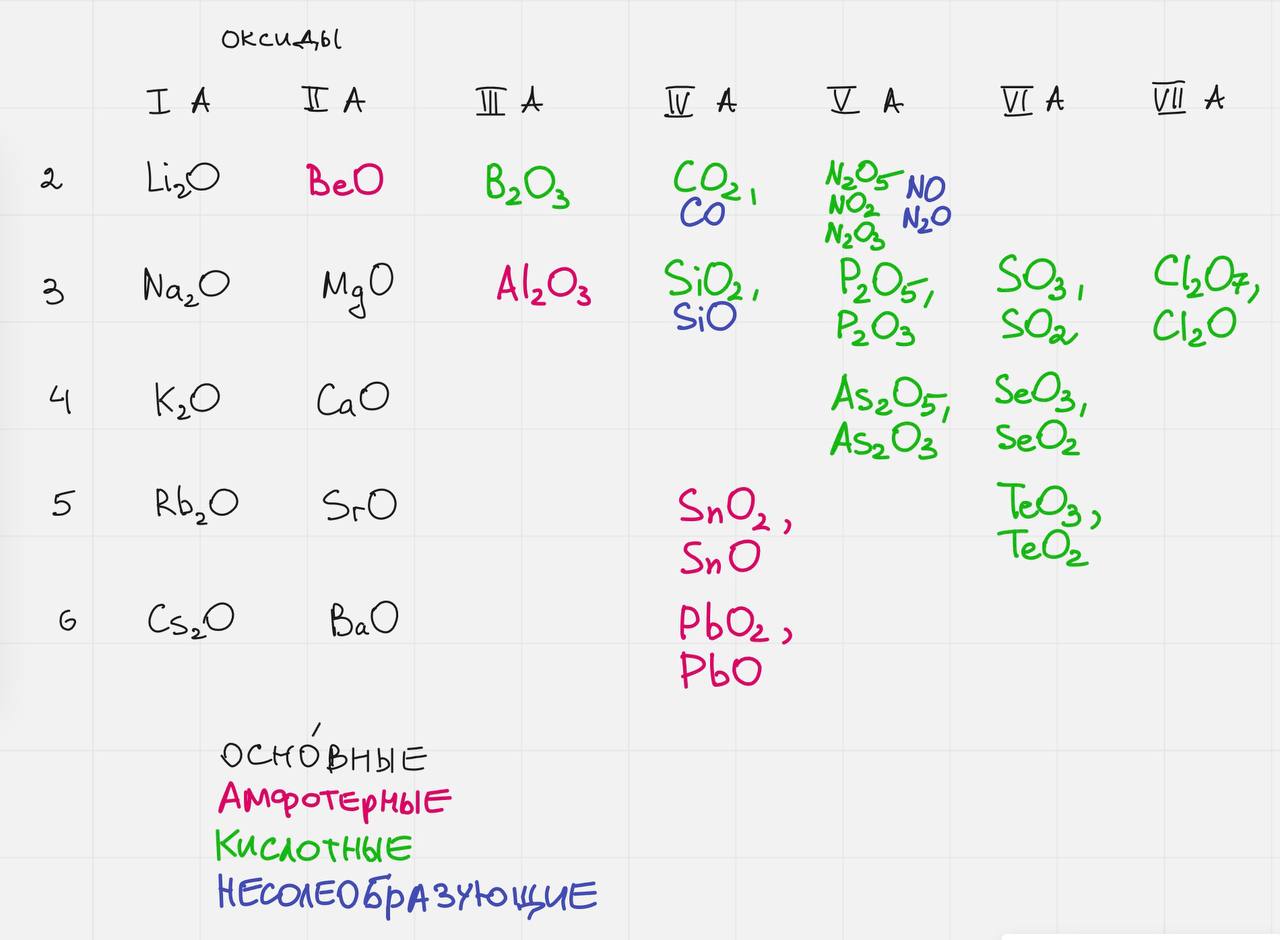 оксиды
I A II A III A IV A V A VI A VII A
2 Li₂O BeO B₂O₃ CO₂, N₂O₅ NO
CO NO₂ N₂O
N₂O₃
3 Na₂O MgO Al₂O₃ SiO₂, P₂O₅, SO₃, Cl₂O₇,
SiO P₂O₃ SO₂ Cl₂O
4 K₂O CaO As₂O₅, SeO₃,
As₂O₃ SeO₂
5 Rb₂O SrO SnO₂, TeO₃,
SnO TeO₂
6 Cs₂O BaO PbO₂,
PbO
ОСНО́ВНЫЕ
Амфотерные
Кислотные
НЕСОЛЕОБРАЗУЮЩИЕ